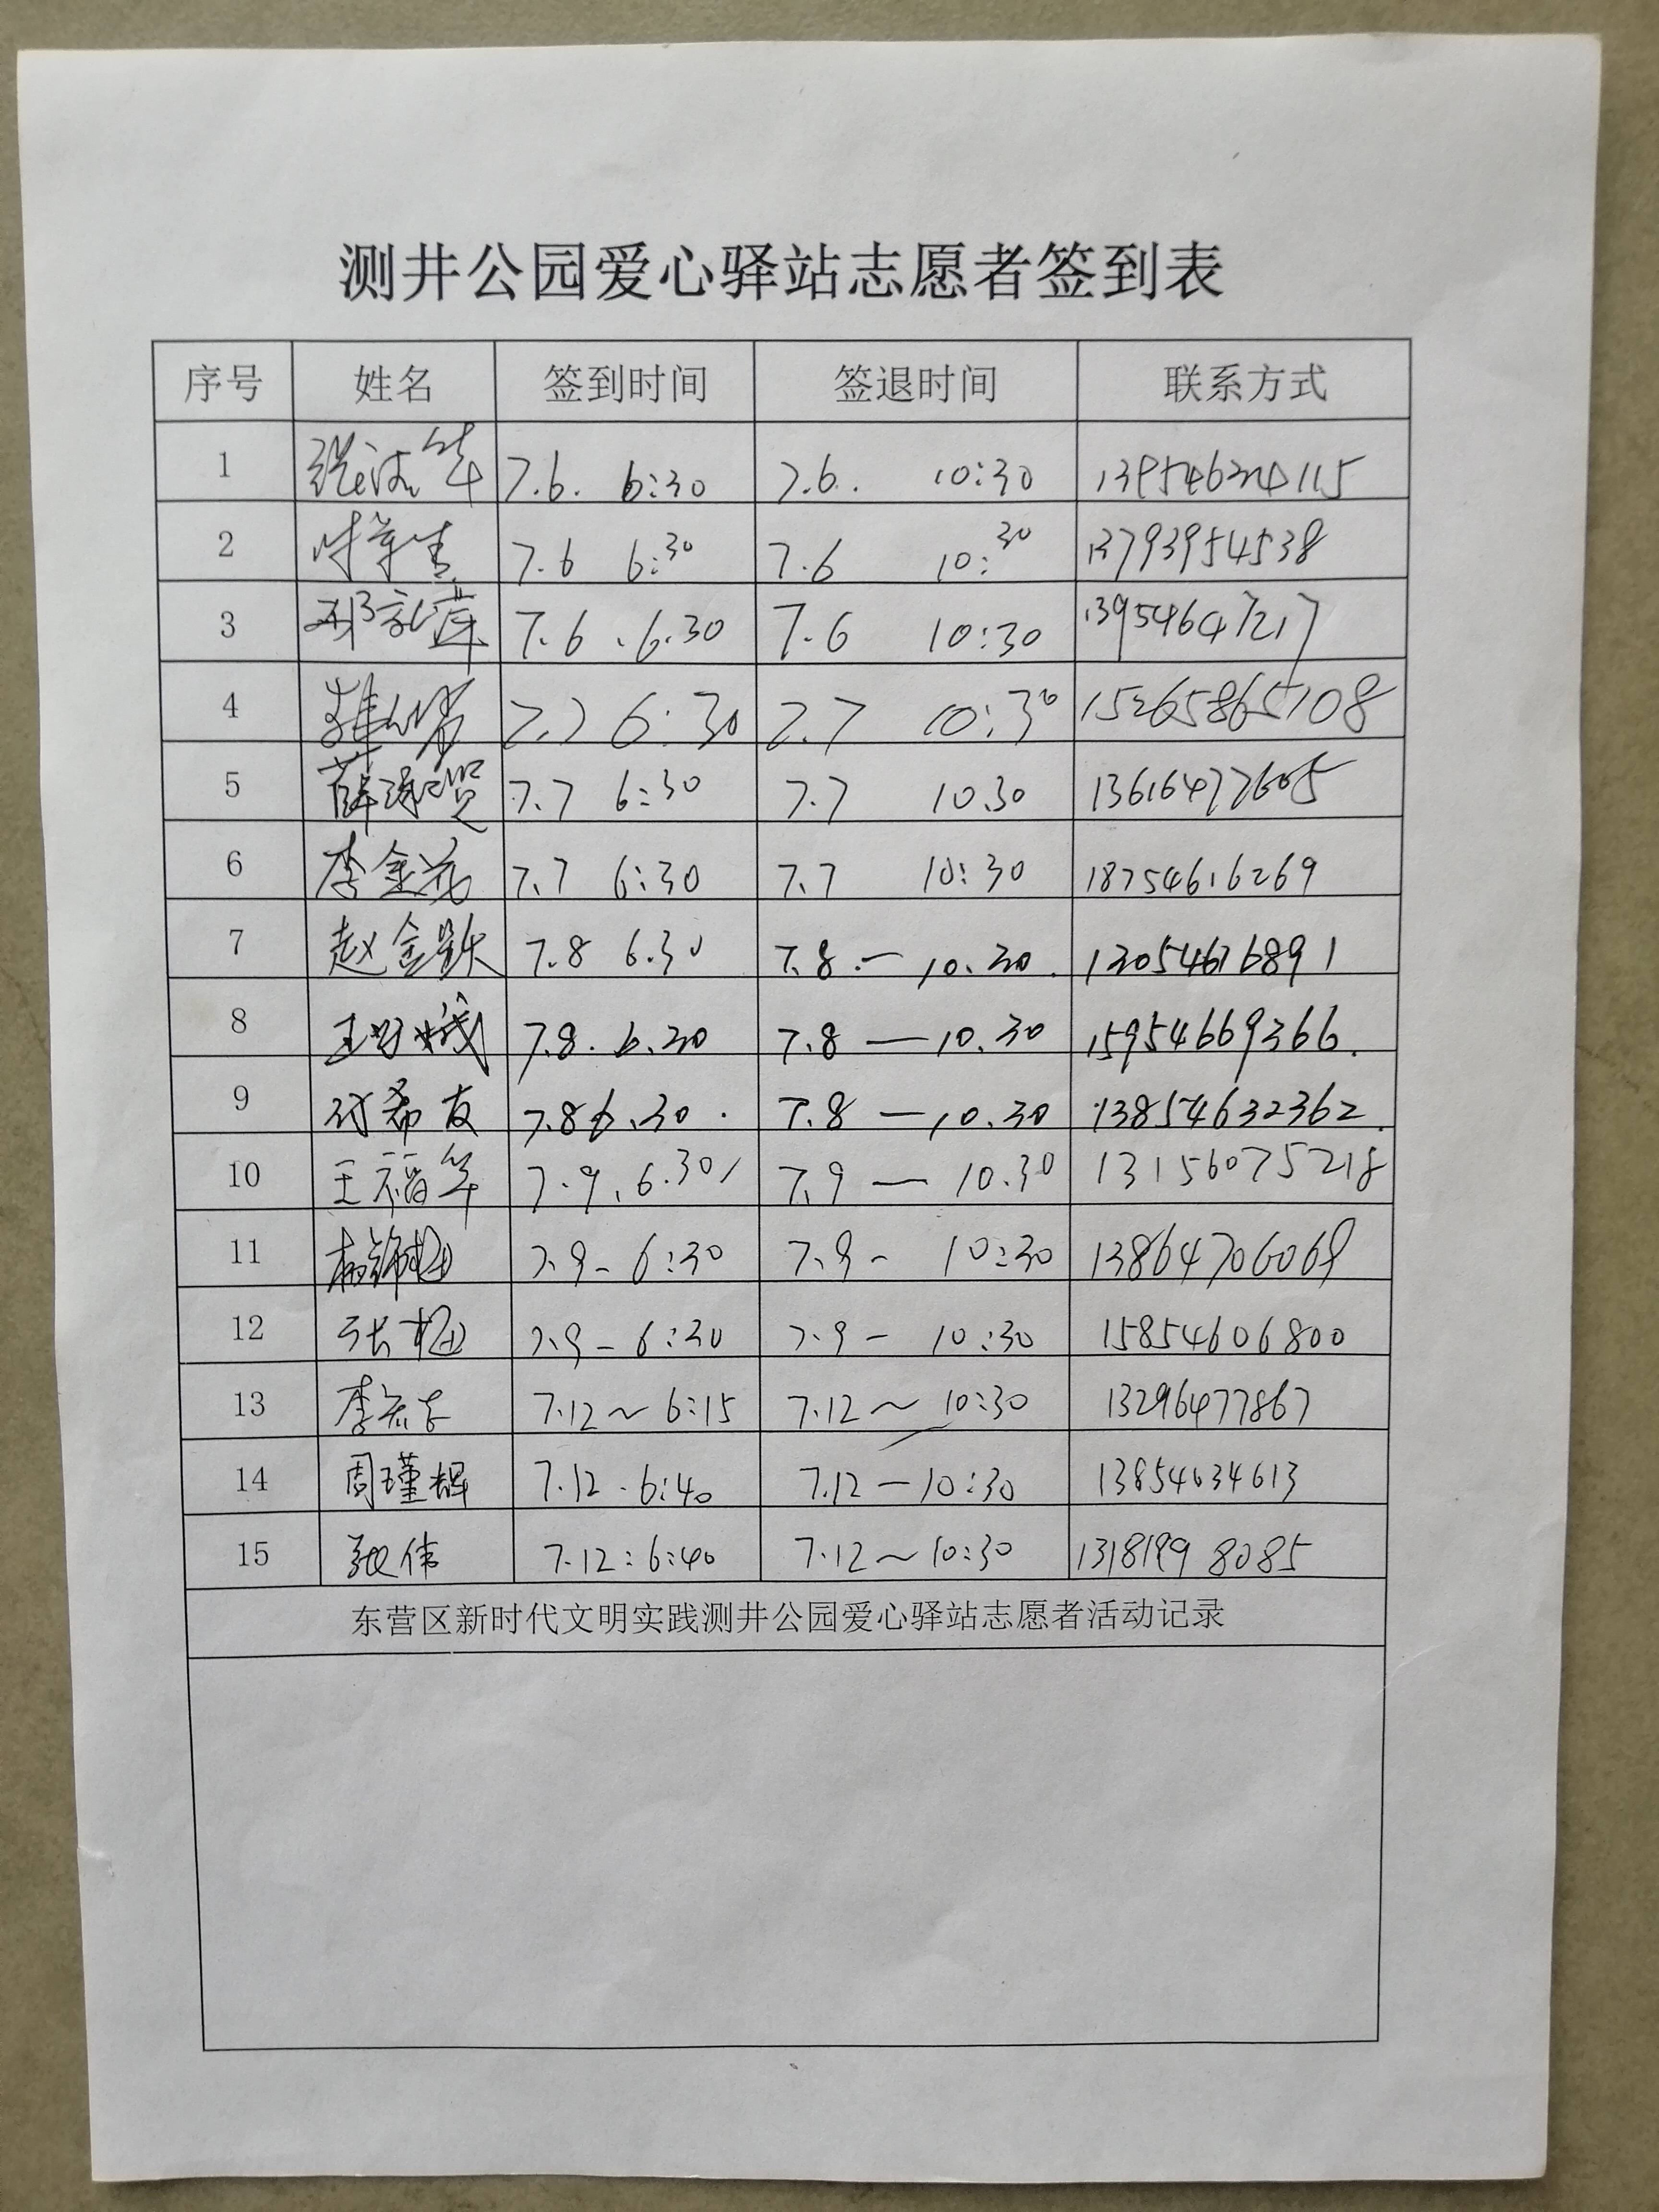 测井公园爱心驿站志愿者签到表
序号 姓名 签到时间 签退时间 联系方式
1 7.6. 6:30 7.6. 10:30
2 7.6 6:30 7.6 10:30 13793954538
3 7.6 .6.30 7.6 10:30 13954647217
4 7.7 6:30 7.7 10:30 15265865108
5 7.7 6:30 7.7 10.30 13616477605
6 李金花 7.7 6:30 7.7 10:30 18754616269
7 赵金跃 7.8 6.30 7.8.— 10.30. 13054616891
8 7.8. 6.30 7.8 — 10.30 15954669366.
9 付希友 7.8 6.30. 7.8 — 10.30 13854632362.
10 王福华 7.9.6.30 7.9 — 10.30 13156075218
11 7.9- 6:30 7.9- 10:30 13864706069
12 7.9- 6:30 7.9- 10:30 15854606800
13 7.12~6:15 7.12~10:30 13296477867
14 周瑾辉 7.12.6:40 7.12—10:30 13854634613
15 张伟 7.12:6:40 7.12~10:30 13181998085
东营区新时代文明实践测井公园爱心驿站志愿者活动记录